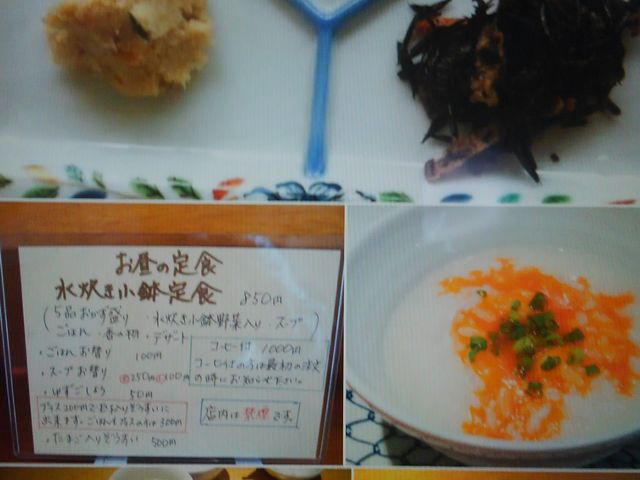 お昼の定食
水炊き小鉢定食 850円
(5品おかず盛り ・水炊き小鉢野菜入り・スープ
ごはん ・香の物・デザート)
・ごはんお替り 100円
・スープお替り 250円 100円
・ゆずこしょう 50円
コーヒー付 1000円
コーヒー付の方は最初の注文
の時にお知らせ下さい。
プラス200円で玉子入りぞうすいに
出来ます。ごはん 300円
・たまご入りぞうすい 500円
店内は禁煙です。